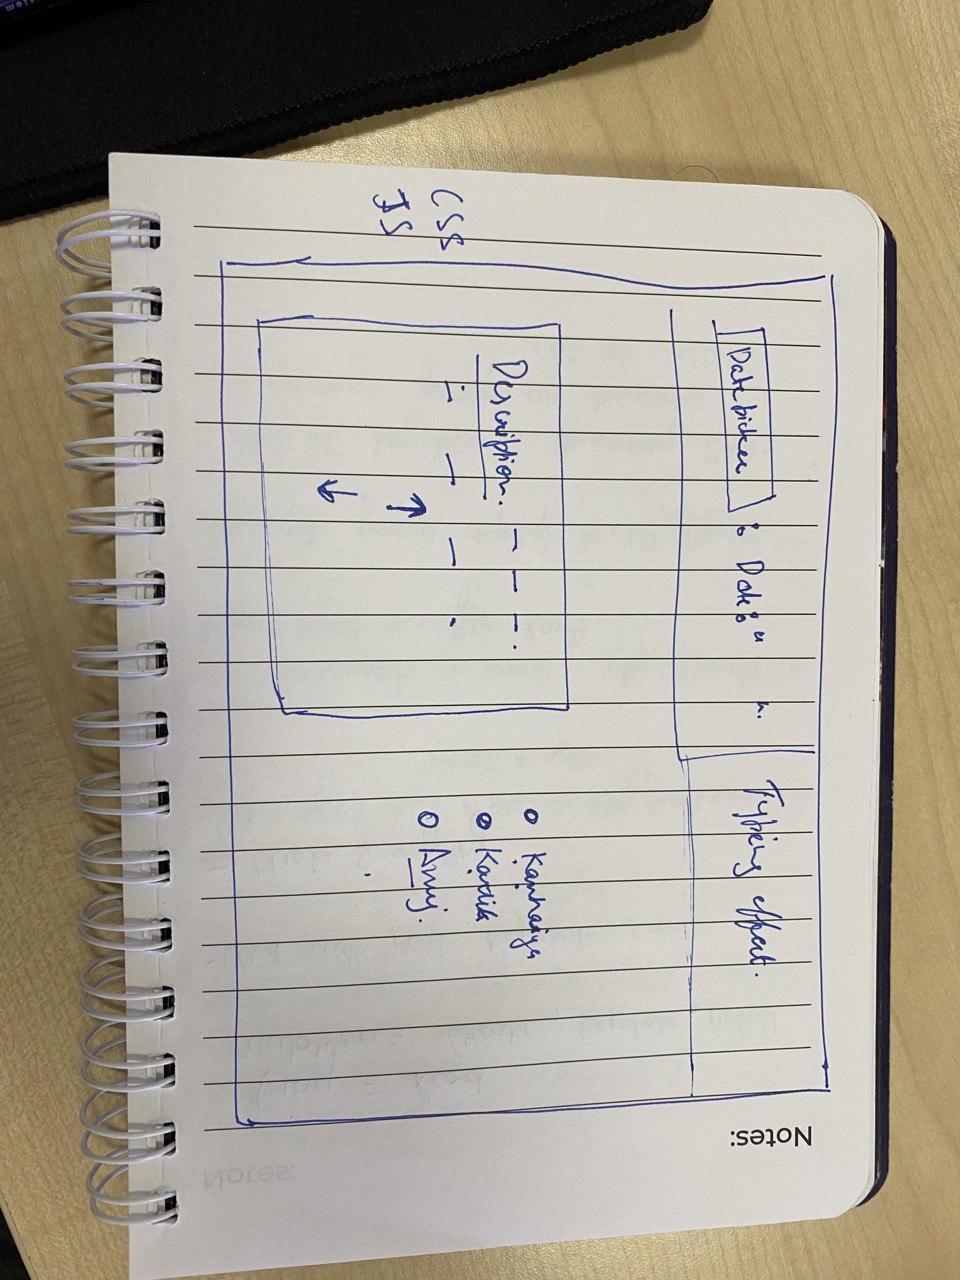 Notes:
Datepicker : Date: " ".
Typing effect.
Description. - - - .
- - - .
CSS
JS
Kanhaiya
Kartik
Anuj.